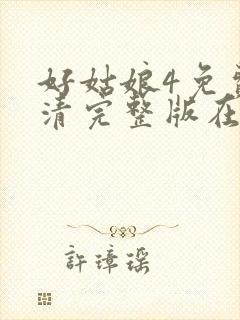 好姑娘4免
清完整版在
許璋瑶